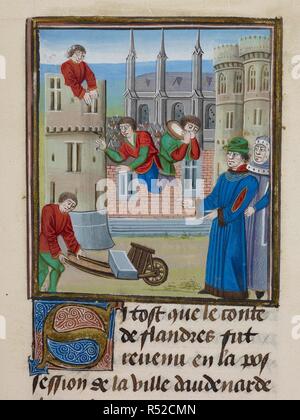 Si tost que le conte
de flandres fut
revenu en la pos
session de la ville daudenarde
alamy stock photo
www.alamy.com · R52CMN